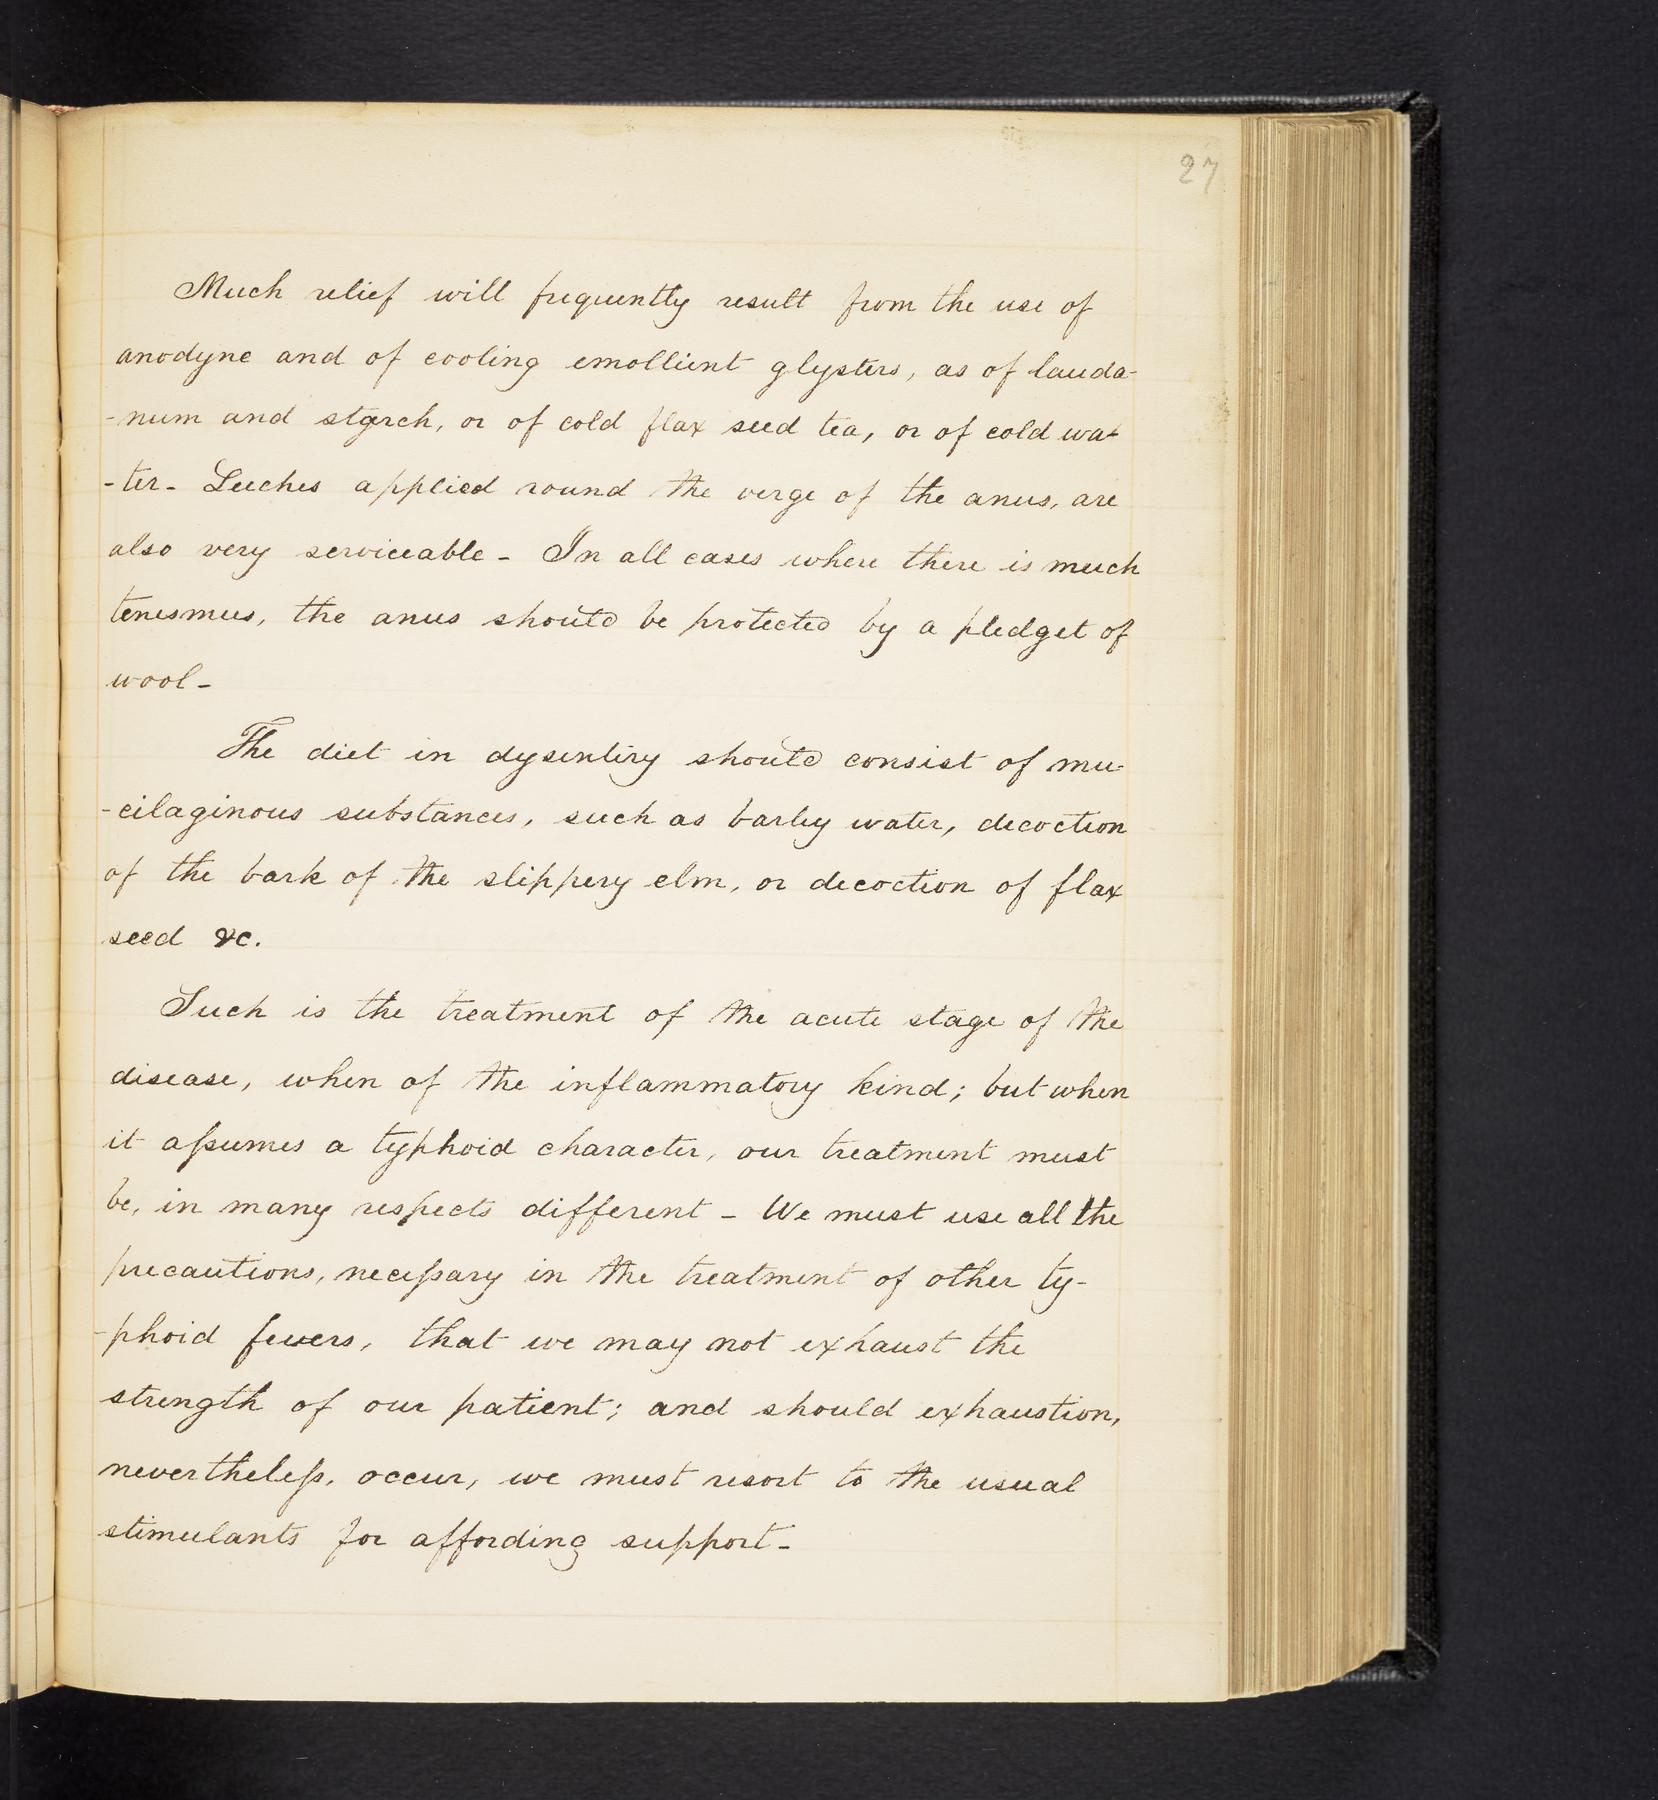 27
Much relief will frequently result from the use of
anodyne and of cooling emollient glysters, as of lauda-
-num and starch, or of cold flax seed tea, or of cold wa-
-ter- Leeches applied round the verge of the anus, are
also very serviceable - In all cases where there is much
tenesmus, the anus should be protected by a pledget of
wool -
The diet in dysentery should consist of mu-
-cilaginous substances, such as barley water, decoction
of the bark of the slippery elm, or decoction of flax
seed &c.
Such is the treatment of the acute stage of the
disease, when of the inflammatory kind; but when
it aſsumes a typhoid character, our treatment must
be, in many respects different - We must use all the
precautions, neceſsary in the treatment of other ty-
-phoid fevers, that we may not exhaust the
strength of our patient; and should exhaustion,
nevertheleſs, occur, we must resort to the usual
stimulants for affording support -